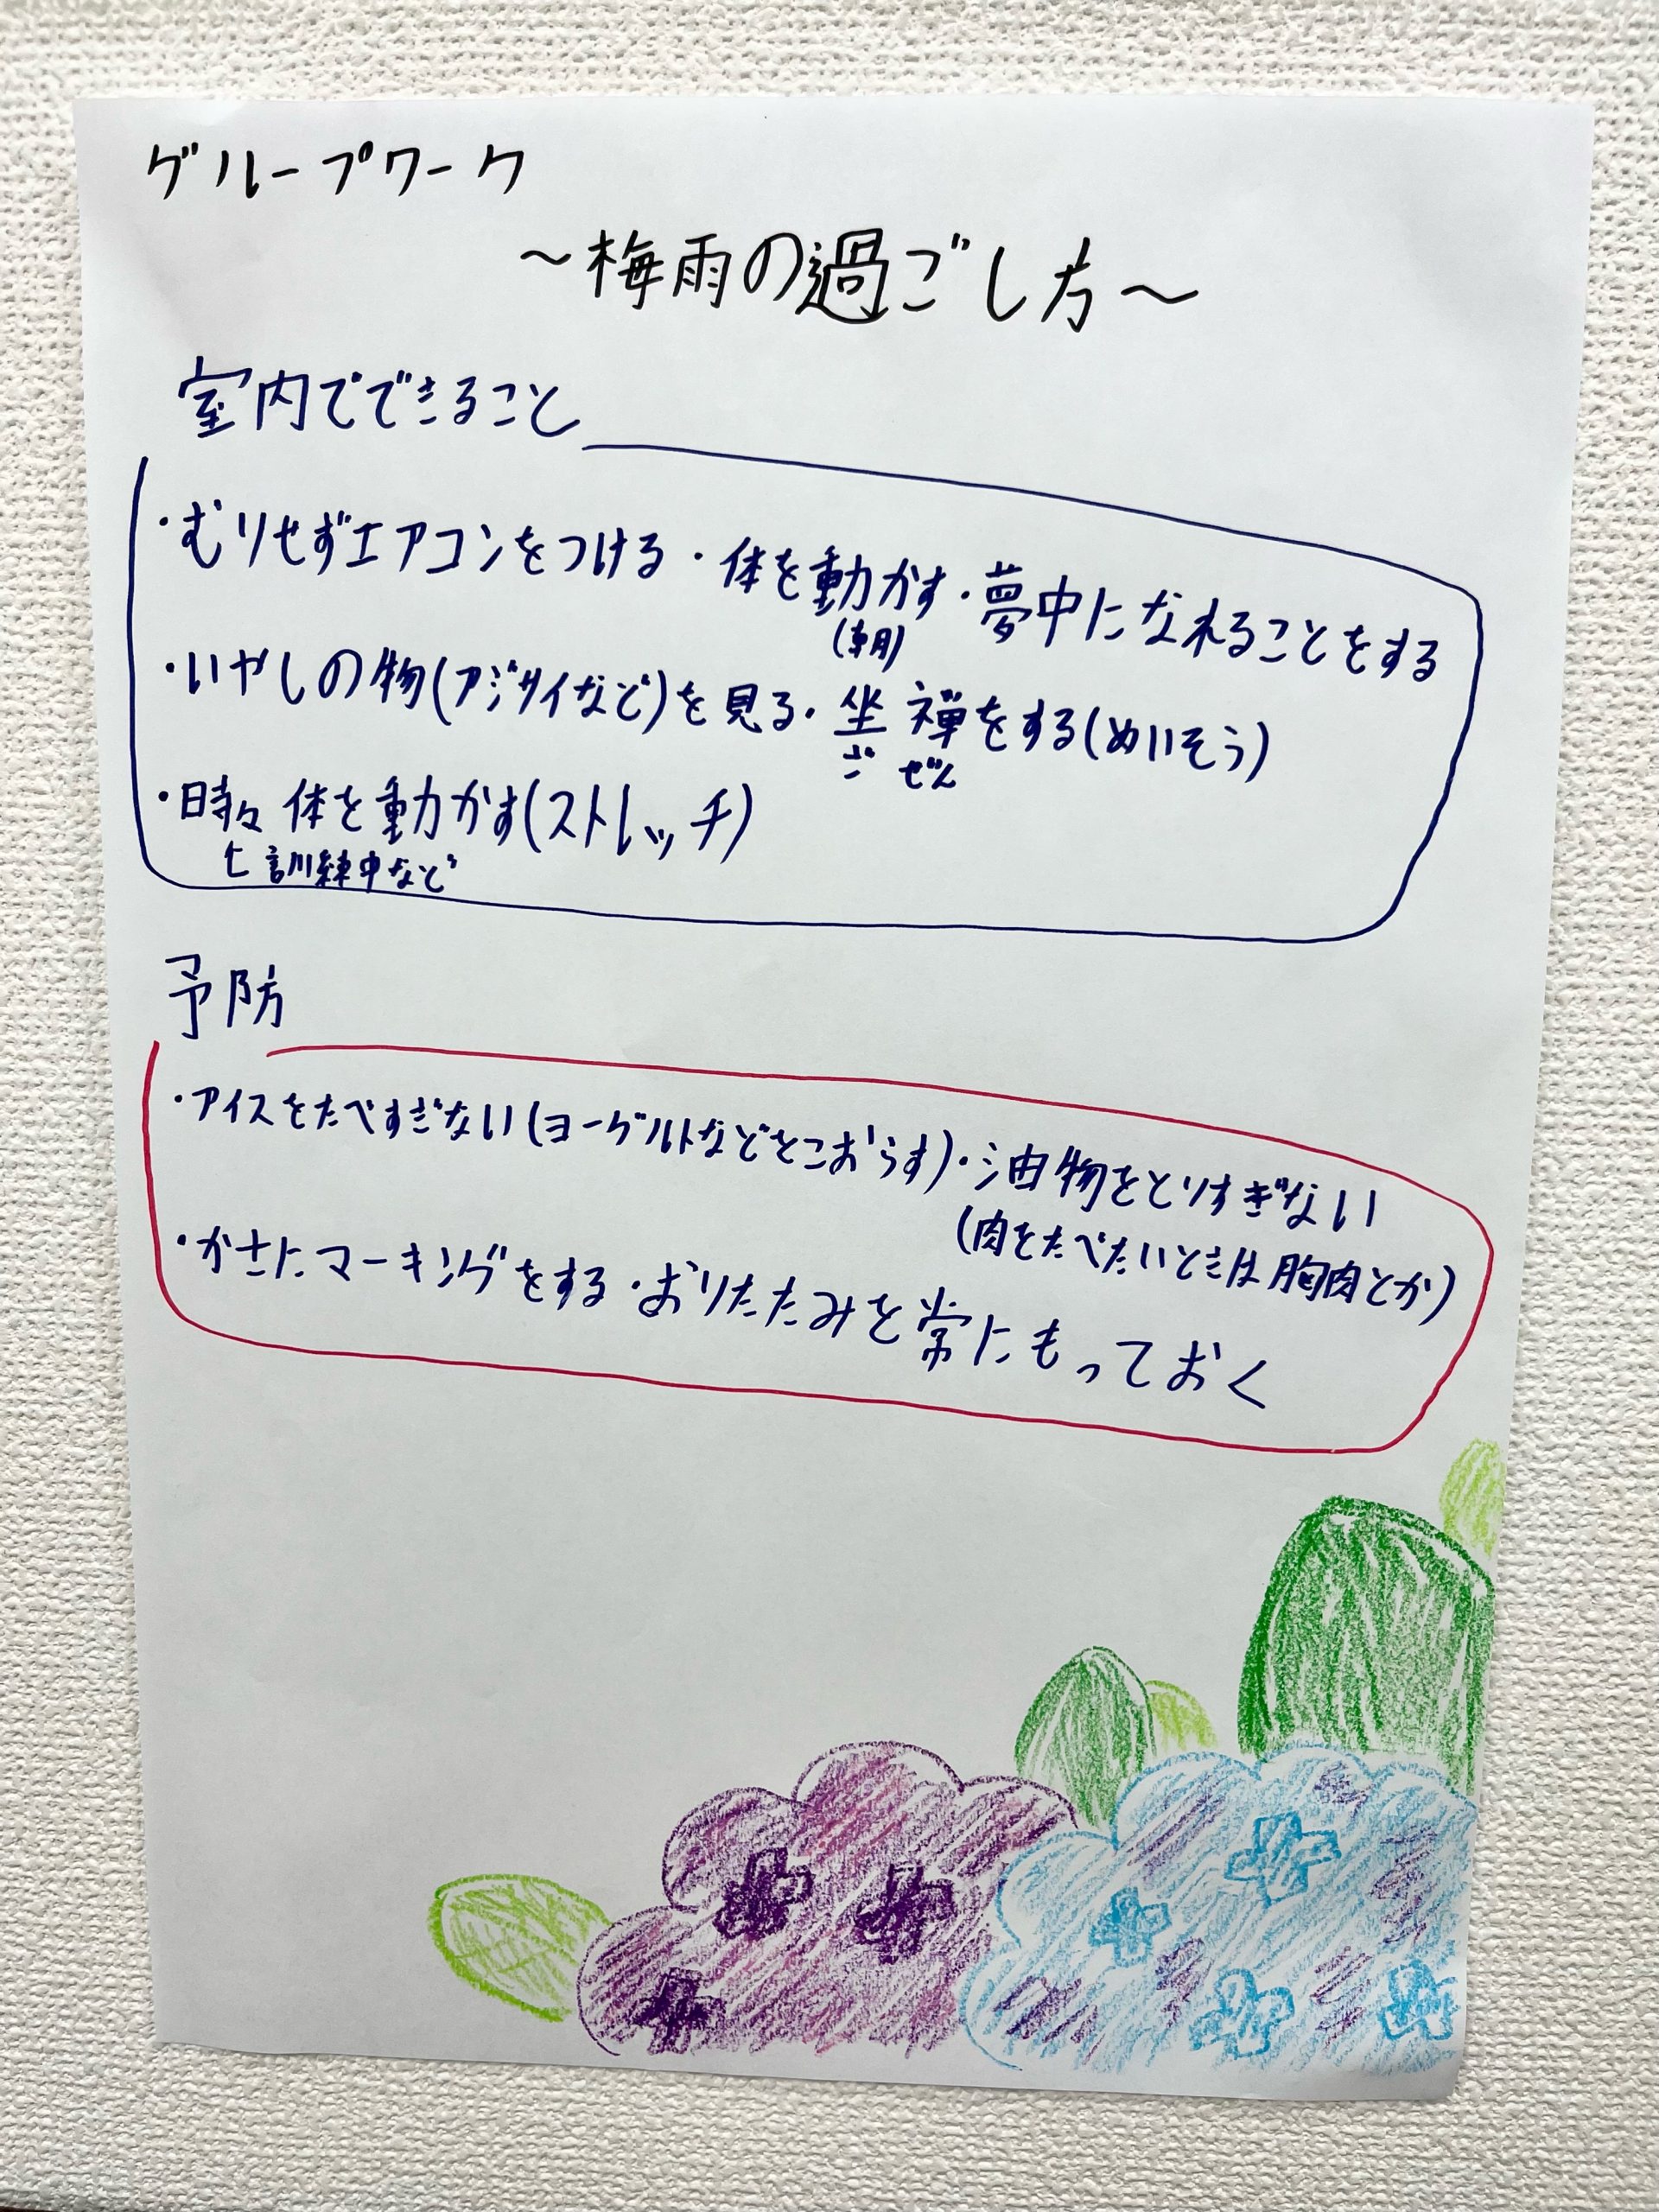 グループワーク
~梅雨の過ごし方~
室内でできること
・むりせずエアコンをつける・体を動かす・夢中になれることをする
(朝)
・いやしの物(アジサイなど)を見る・坐禅をする(めいそう)
ざ ぜん
・時々体を動かす(ストレッチ)
訓練中など
予防
・アイスをたべすぎない(ヨーグルトなどをこおらす)・油物をとりすぎない
(肉をたべたいときは胸肉とか)
・かさにマーキングをする・おりたたみを常にもっておく